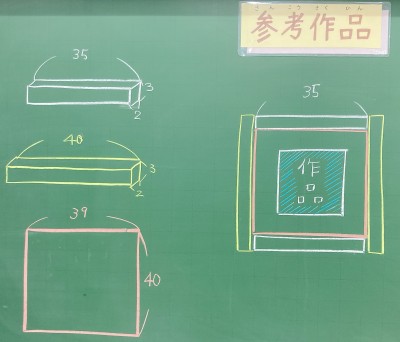 さんこうさくひん
参考作品
35
3
2
40
3
2
39
40
35
作
品